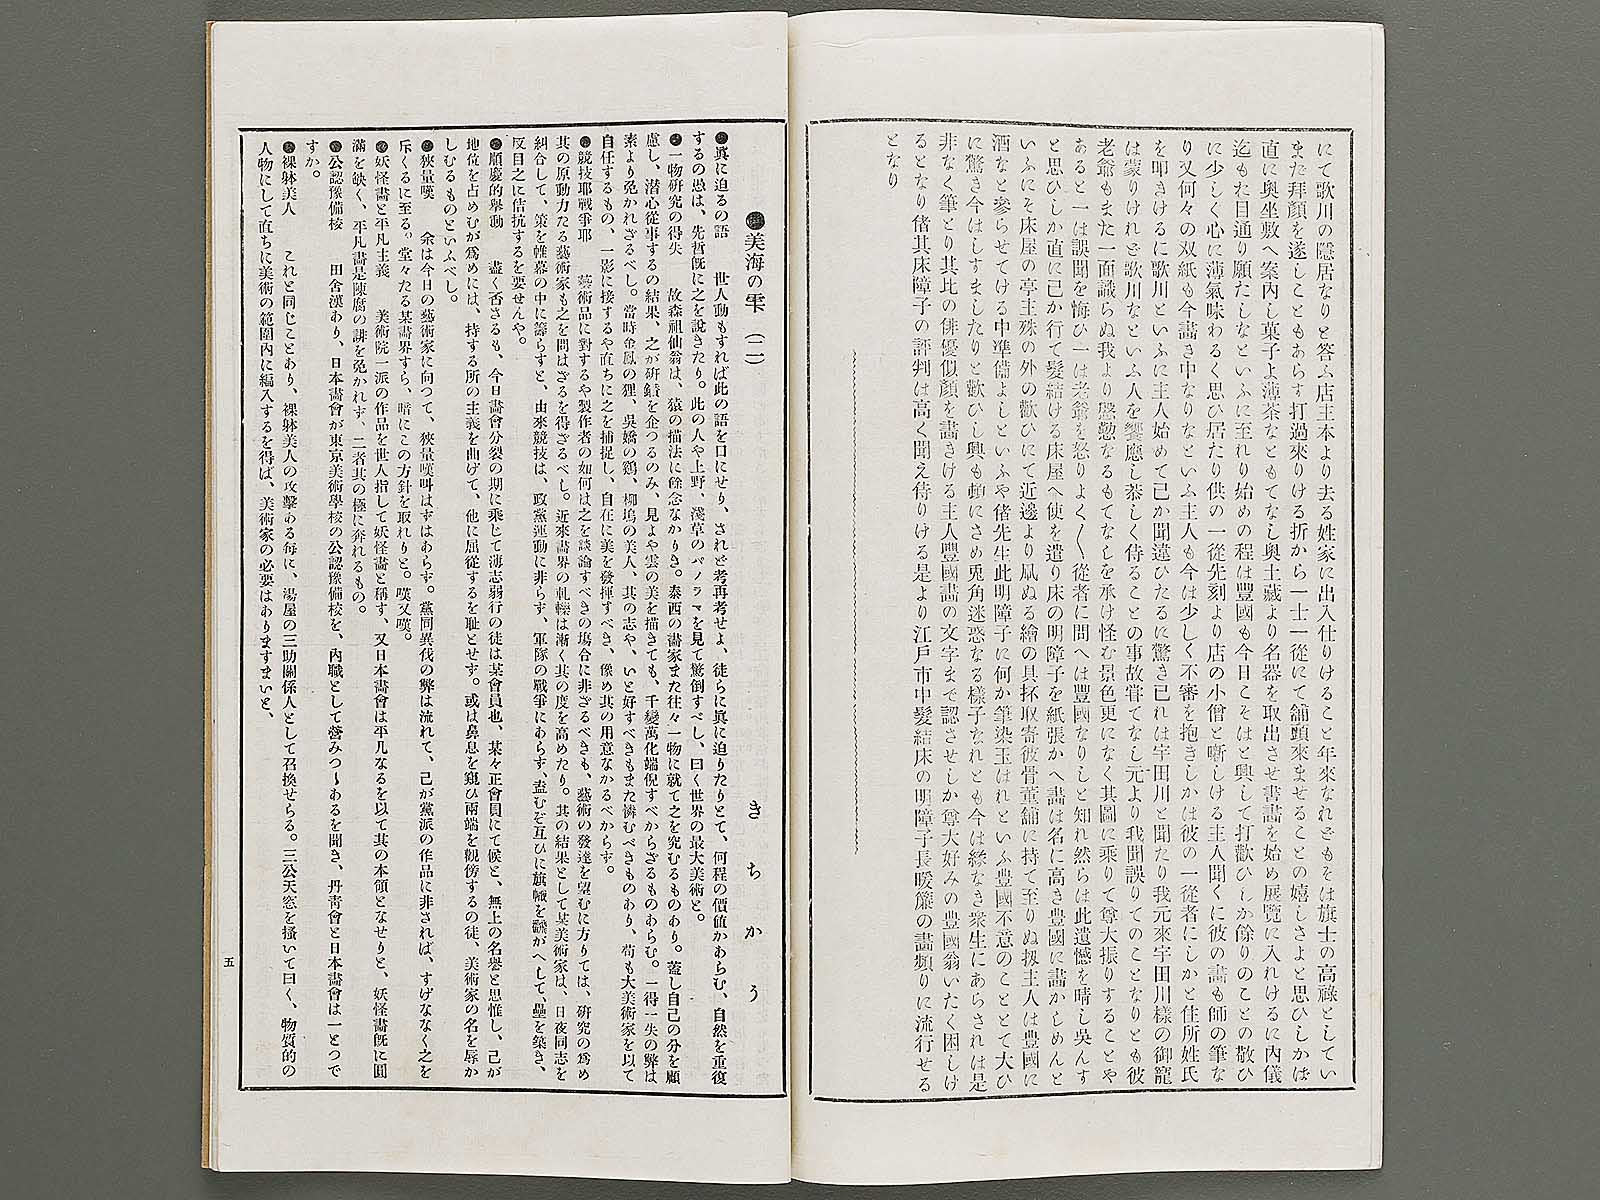 にて歌川の隱居なりと答ふ店主本より去る姓家に出入仕りけること年來なれどもそは旗士の高祿としてい
まだ拜顏を遂しこともあらす打過來りける折から一士一從にて舖頭來ませることの嬉しさよと思ひしかば
直に奥坐敷へ案内し菓子よ薄茶などもてなし奥土藏より名器を取出させ書畵を始め展覽に入れけるに内儀
迄もお目通り願たしなといふに至れり始めの程は豐國も今日こそはと興して打歡ひしか餘りのことの敬ひ
に少しく心に薄氣味わるく思ひ居たり供の一從先刻より店の小僧と噺しける主人聞くに彼の畵も師の筆な
り又何々の双紙も今畵き中なりなといふ主人も今は少しく不審を抱きしかは彼の一從者にしかと住所姓氏
を叩きけるに歌川といふに主人始めて己か聞違ひたるに驚き已れは宇田川と聞たり我元來宇田川樣の御寵
は蒙りけれど歌川なといふ人を饗應し恭しく侍ることの事故甞てなし元より我聞誤りてのことなりとも彼
老爺もまた一面識らぬ我より慇懃なるもてなしを承け怪む景色更になく其圖に乘りて尊大振りすることや
あると一は誤聞を悔ひ一は老爺を怒りよく〱從者に問へは豐國なりしと知れ然らは此遺憾を晴し吳んす
と思ひしか直に己か行て髮結ける床屋へ使を遣り床の明障子を紙張かへ畵は名に高き豊國に畵かしめんと
いふにそ床屋の亭主殊の外の歡ひにて近邊より凧ぬる繪の具抔取寄彼骨董舖に持て至りぬ扨主人は豊國に
酒なと參らせてける中準備よしといふや偖先生此明障子に何か筆染玉はれといふ豊國不意のこととて大ひ
に驚き今はしすましたりと歡ひし興も頓にさめ兎角迷惑なる樣子なれとも今は緣なき衆生にあらされは是
非なく筆とり其比の俳優似顏を畵きける主人豐國畵の文字まで認させしか尊大好みの豊國翁いたく困しけ
るとなり偖其床障子の評判は高く聞え侍りける是より江戸市中髮結床の明障子長暖簾の畵頻りに流行せる
となり
●美海の雫（二）
きちかう
●眞に迫るの語　世人動もすれば此の語を口にせり、されど考再考せよ、徒らに眞に迫りたりとて、何程の價値かあらむ、自然を重復
するの愚は、先哲旣に之を說きたり。此の人や上野、淺草のパノラマを見て驚倒すべし、曰く世界の最大美術と。
●一物硏究の得失　故森祖仙翁は、猿の描法に餘念なかりき。泰西の畵家また往々一物に就て之を究むるものあり。蓋し自己の分を顧
慮し、潜心從事するの結果、之が硏鑽を企つるのみ、見よや雲の美を描きても、千變萬化端倪すべからざるものあらむ。一得一失の弊は
素より免かれざるべし。當時金鳳の狸、吳嬌の鷄、柳塢の美人、其の志や、いと好すべきもまた憐むべきものあり、苟も大美術家を以て
自任するもの、一影に接するや直ちに之を捕捉し、自在に美を發揮すべき、像め其の用意なかるべからず。
●競技耶戰爭耶　藝術品に對するや製作者の如何は之を談論すべきの塲合に非ざるべきも、藝術の發達を望むに方りては、硏究の爲め
其の原動力たる藝術家も之を問はざるを得ざるべし。近來畵界の軋轢は漸く其の度を高めたり。其の結果として某美術家は、日夜同志を
糾合して、策を帷幕の中に籌らすと、由來競技は、政黨運動に非らず、軍隊の戰爭にあらず、盍むぞ互ひに旗幟を飜がへして、壘を築き、
反目之に佶抗するを要せんや。
●順慶的擧動　盡く否さるも、今日畵會分裂の期に乘じて薄志弱行の徒は某會員也、某々正會員にて候と、無上の名譽と思惟し、己が
地位を占めむが爲めには、持する所の主義を曲げて、他に屈從するを耻とせず。或は鼻息を窺ひ兩端を觀傍するの徒、美術家の名を辱か
しむるものといふべし。
●狹量嘆　余は今日の藝術家に向つて、狹量嘆叫はずはあらず。黨同異伐の弊は流れて、己が黨派の作品に非されば、すげななく之を
斥くるに至る。堂々たる某畵界すら、暗にこの方針を取れりと。嘆又嘆。
●妖怪畵と平凡主義　美術院一派の作品を世人指して妖怪畵と稱す、又日本畵會は平凡なるを以て其の本領となせりと、妖怪畵旣に圓
滿を缺く、平凡畵是陳腐の誹を免かれず、二者其の極に奔れるもの。
●公認豫備校　田舍漢あり、日本畵會が東京美術學校の公認豫備校を、内職として營みつゝあるを聞き、丹靑會と日本畵會は一とつで
すか。
●裸躰美人　これと同じことあり、裸躰美人の攻擊ある每に、湯屋の三助關係人として召換せらる。三公天窓を搔いて曰く、物質的の
人物にして直ちに美術の範圍内に編入するを得ば、美術家の必要はありますまいと、
五